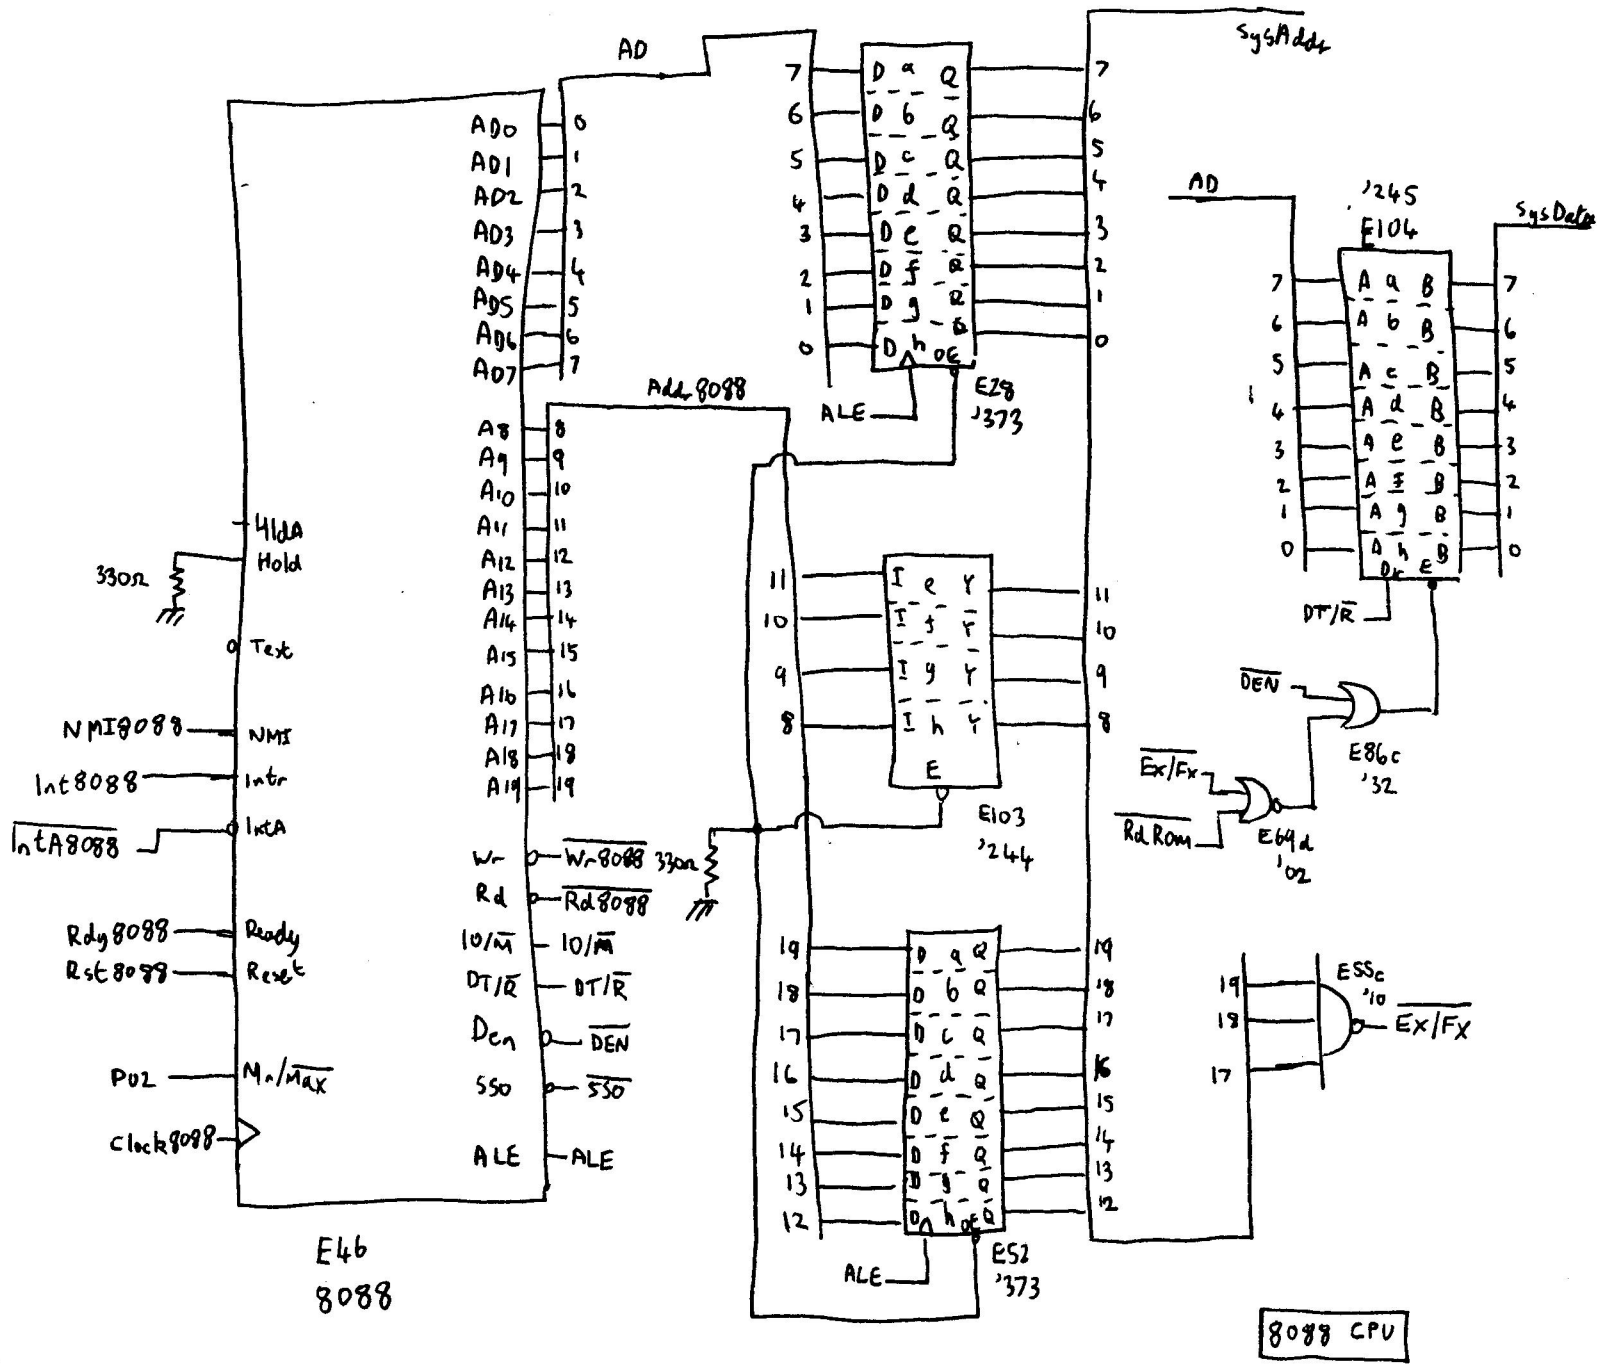 AD
AD0 0
AD1 1
AD2 2
AD3 3
AD4 4
AD5 5
AD6 6
AD7 7
Addr8088
A8 8
A9 9
A10 10
A11 11
A12 12
A13 13
A14 14
A15 15
A16 16
A17 17
A18 18
A19 19
HldA
Hold
330Ω
Test
NMI8088 NMI
Int8088 Intr
IntA8088 IntA
Rdy8088 Ready
Rst8088 Reset
PU2 Mn/Max
Clock8088
Wr Wr8088
Rd Rd8088
IO/M IO/M
DT/R DT/R
Den DEN
SSO SSO
ALE ALE
E46
8088
SysAddr
7 D a Q 7
6 D b Q 6
5 D c Q 5
4 D d Q 4
3 D e Q 3
2 D f Q 2
1 D g Q 1
0 D h Q 0
OE
ALE
E28
'373
11 I e Y 11
10 I f Y 10
9 I g Y 9
8 I h Y 8
E
E103
'244
330Ω
19 D a Q 19
18 D b Q 18
17 D c Q 17
16 D d Q 16
15 D e Q 15
14 D f Q 14
13 D g Q 13
12 D h Q 12
OE
ALE
E52
'373
AD
'245
E104
SysData
7 A a B 7
6 A b B 6
5 A c B 5
4 A d B 4
3 A e B 3
2 A f B 2
1 A g B 1
0 A h B 0
Dir E
DT/R
DEN
E86c
'32
Ex/Fx
RdRom
E69d
'02
19
18
17
E55c
'10
Ex/Fx
8088 CPU